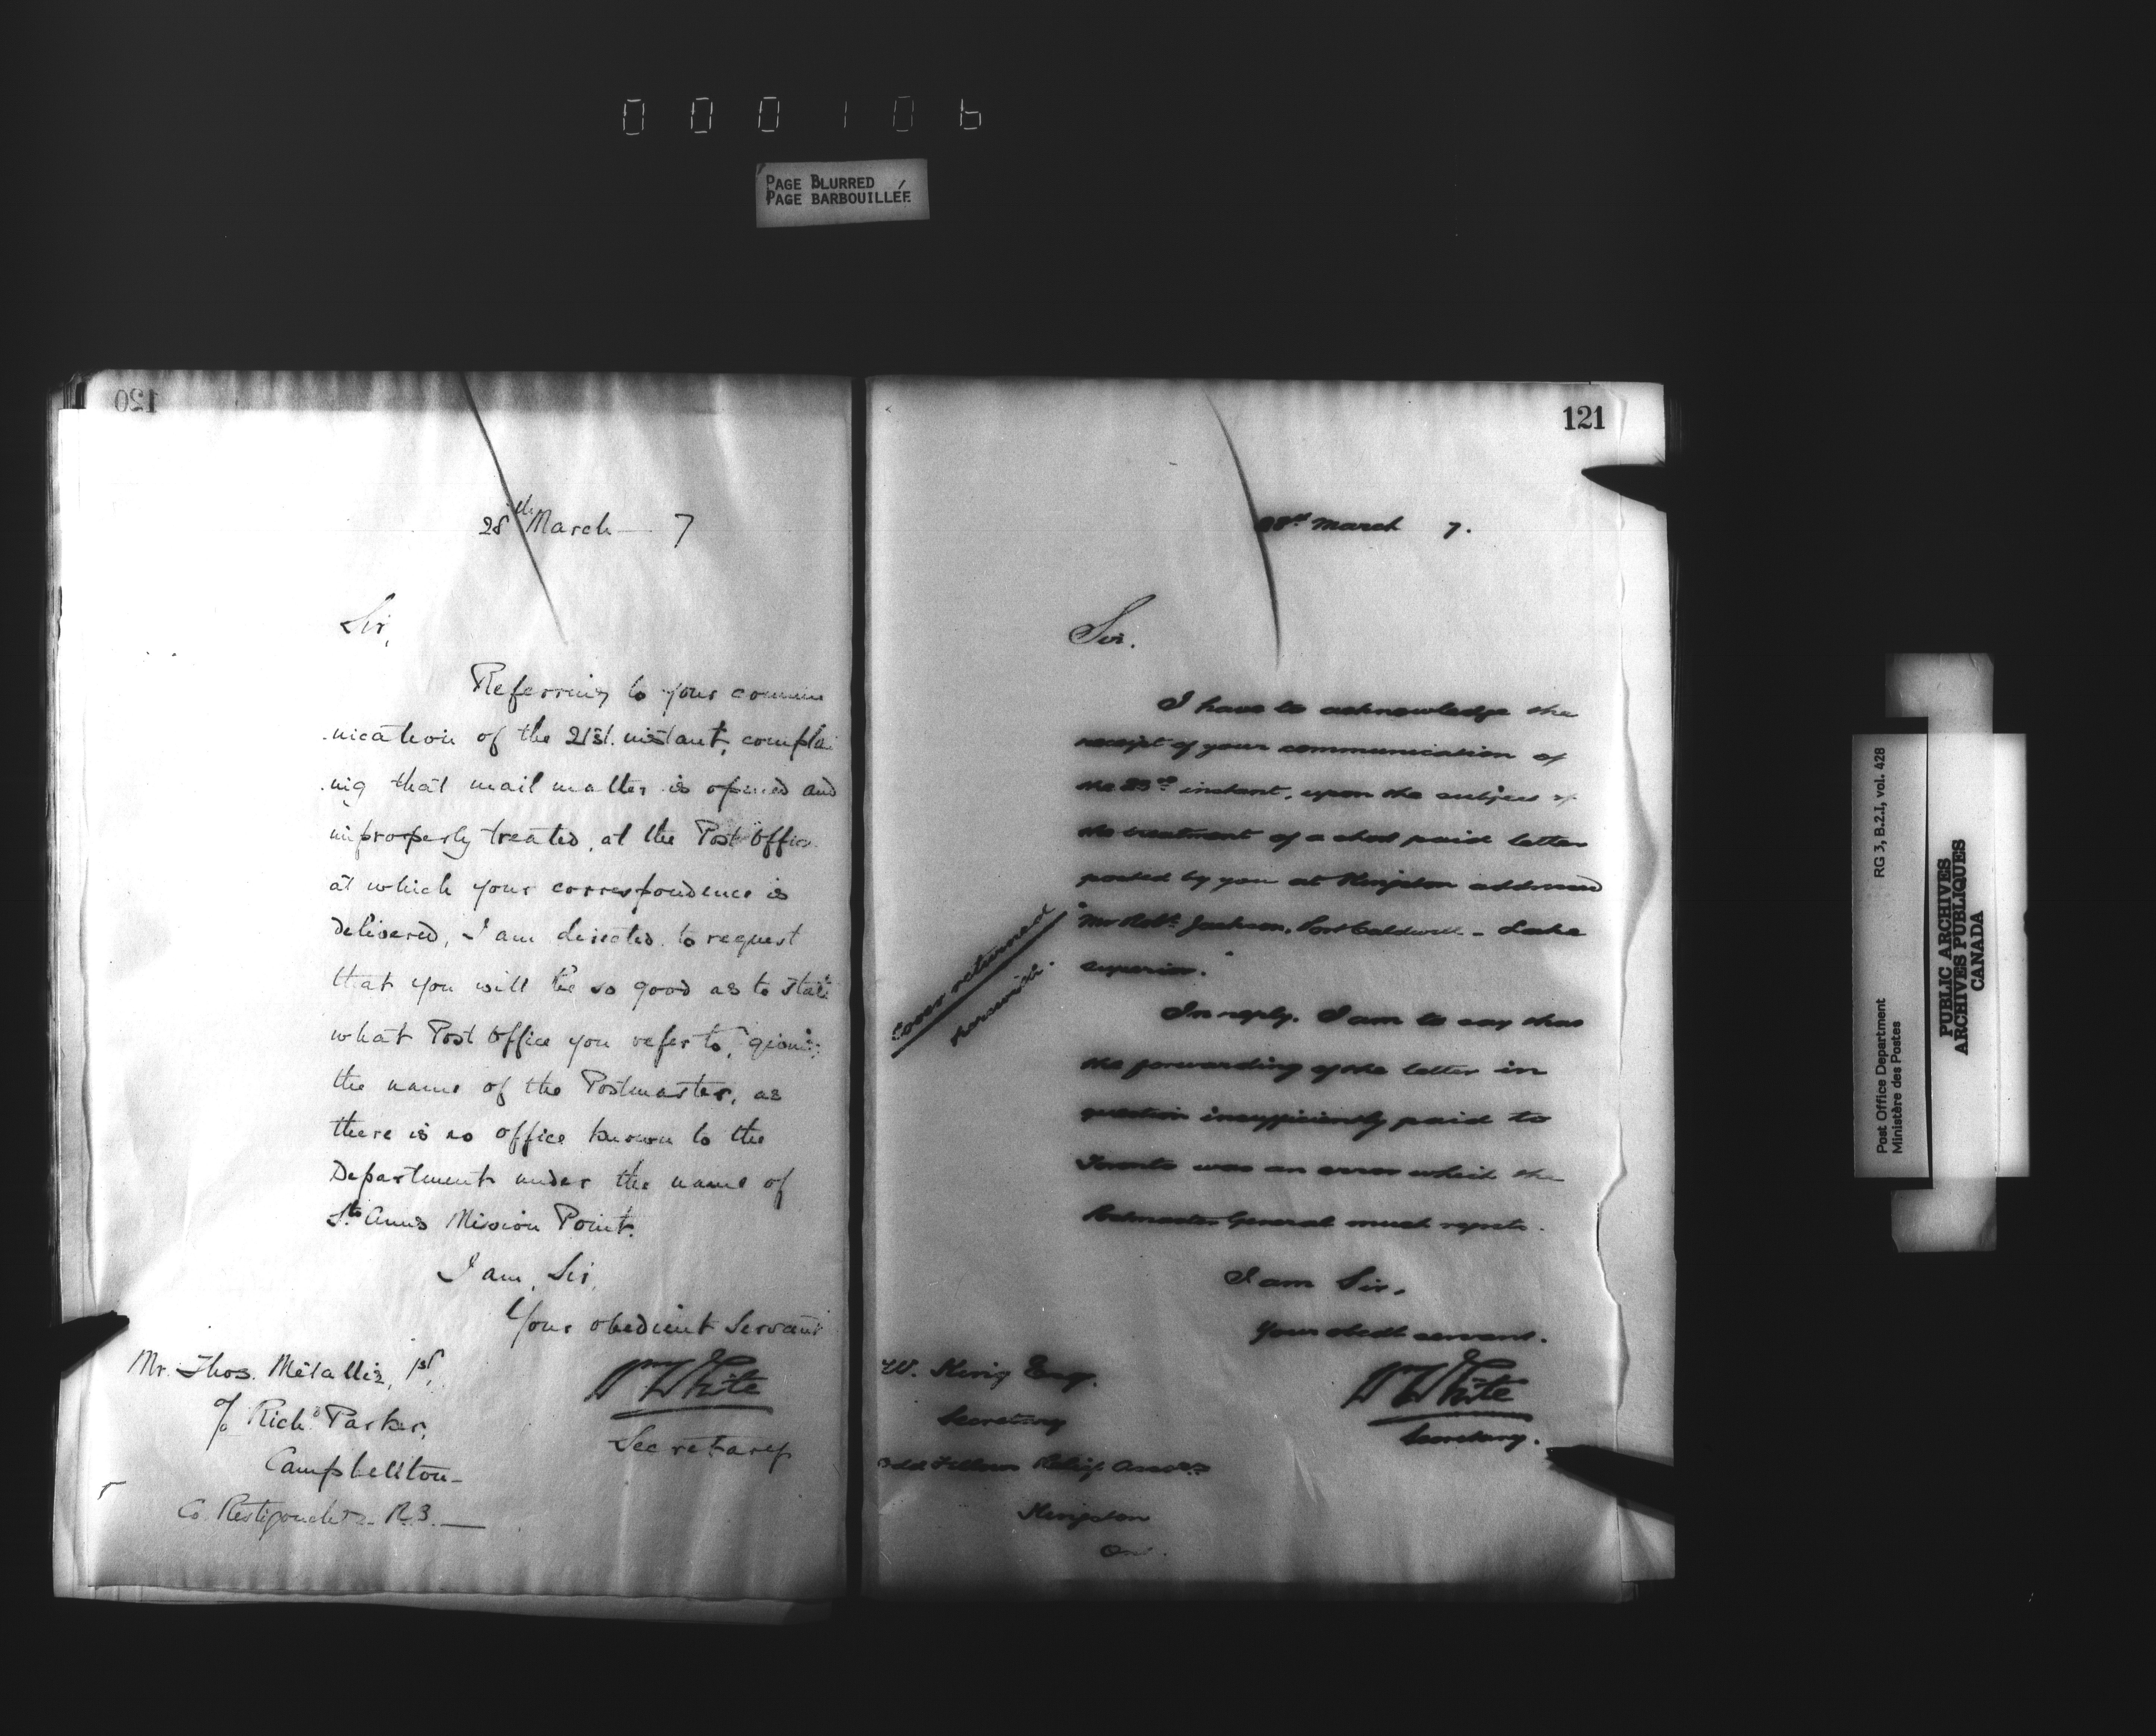 000106
PAGE BLURRED
PAGE BARBOUILLÉE
120
28th March — 7
Sir,
Referring to your commu
nication of the 21st. instant, complai
ning that mail matter is opened and
improperly treated, at the Post Office
at which your correspondence is
delivered, I am directed to request
that you will be so good as to state
what Post Office you refer to, giving
the name of the Postmaster, as
there is no office known to the
Department under the name of
St. Anns Mission Point.
I am, Sir,
Your obedient Servant
WWhite
Secretary
Mr. Thos. Métallic, 1st,
c/o Richd Parker,
Campbellton—
Co. Restigouche
121
28th March 7.
Sir.
I have to acknowledge the
receipt of your communication of
the 23rd instant, upon the subject of
the treatment of a short paid letter
posted by you at Kingston addressed
"Mr Robt. Jackson, Port Caldwell - Lake
Superior."
Cover returned
herewith.
In reply. I am to say that
the forwarding of the letter in
question insufficiently paid to
Toronto was an error which the
Postmaster General much regrets.
I am Sir,
Your obedt servant.
WWhite
Secretary.
W. King Esq.
Secretary
Odd Fellows Relief Assocn
Kingston
Ont.
Post Office Department
Ministère des Postes
RG 3, B.2.I, vol. 428
PUBLIC ARCHIVES
ARCHIVES PUBLIQUES
CANADA